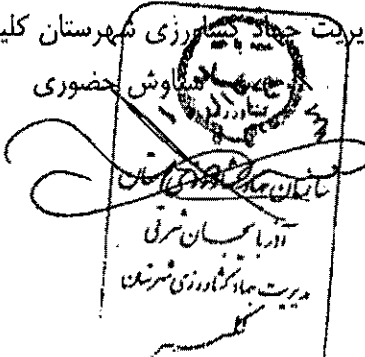 یریت جهاد کشاورزی شهرستان کلی
سیاوش حضوری
جهاد
کشاورزی
سازمان جهاد کشاورزی استان
آذربایجان شرقی
مدیریت جهاد کشاورزی شهرستان
کلیبر